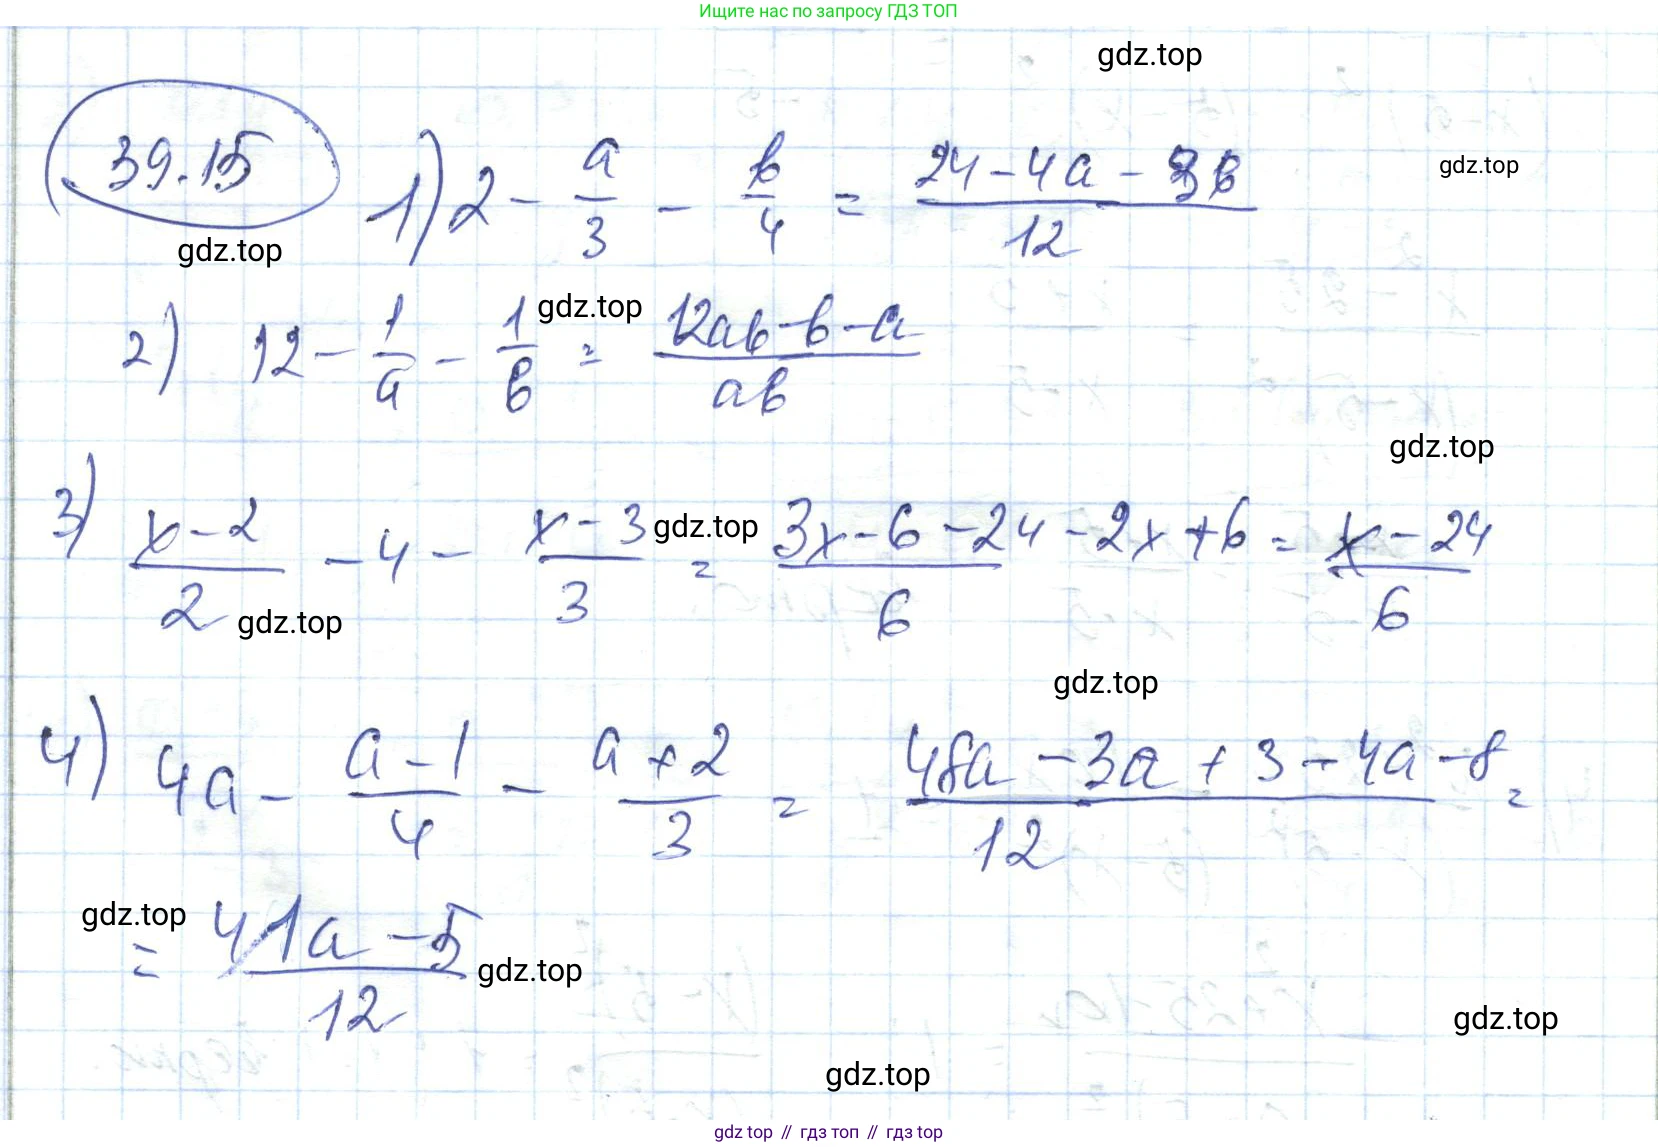 Ищите нас по запросу ГДЗ ТОП
gdz.top
39.15
gdz.top
gdz.top
1) 2 - a/3 - b/4 = (24 - 4a - 3b)/12
gdz.top
2) 12 - 1/a - 1/b = (12ab - b - a)/ab
gdz.top
3) (x - 2)/2 - 4 - (x - 3)/3 = (3x - 6 - 24 - 2x + 6)/6 = (x - 24)/6
gdz.top
gdz.top
gdz.top
4) 4a - (a - 1)/4 - (a + 2)/3 = (48a - 3a + 3 - 4a - 8)/12 =
gdz.top
= (41a - 5)/12
gdz.top
gdz.top
gdz.top
gdz top // гдз топ // gdz top